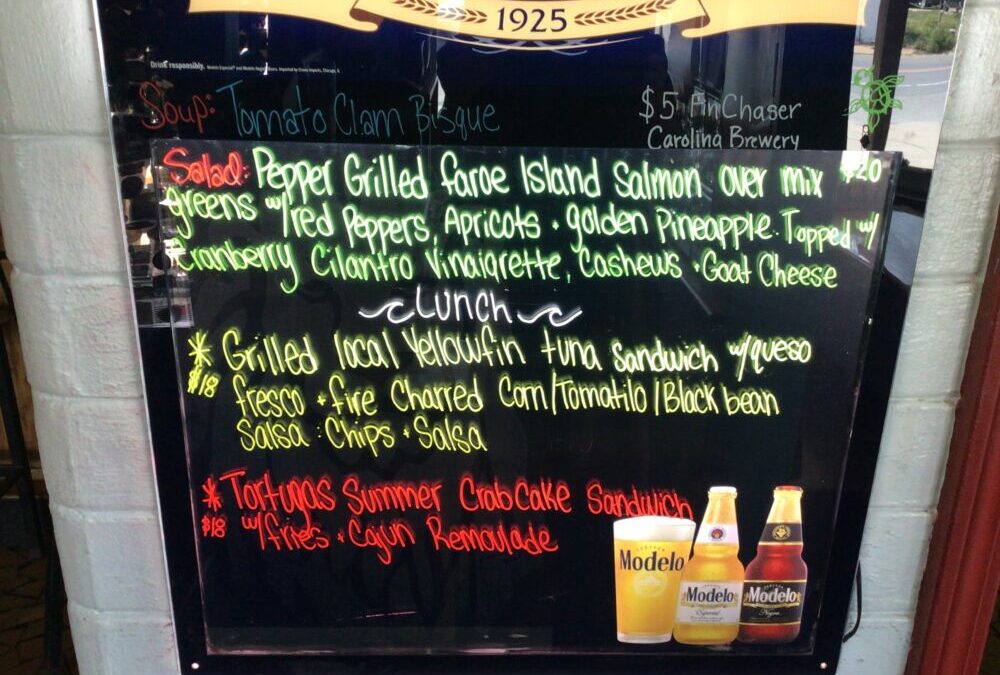 1925
Drink responsibly.
Soup: Tomato Clam Bisque
$5 FinChaser
Carolina Brewery
Salad: Pepper Grilled Faroe Island Salmon over mix $20
greens w/red Peppers, Apricots + golden Pineapple. Topped w/
Cranberry Cilantro Vinaigrette, Cashews + Goat Cheese
Lunch
* Grilled local Yellowfin tuna Sandwich w/queso
$18 fresco + fire Charred Corn/Tomatilo/Black bean
Salsa : Chips + Salsa
* Tortugas Summer CrabCake Sandwich
$18 w/fries + Cajun Remoulade
Modelo
Modelo
Especial
Modelo
Negra